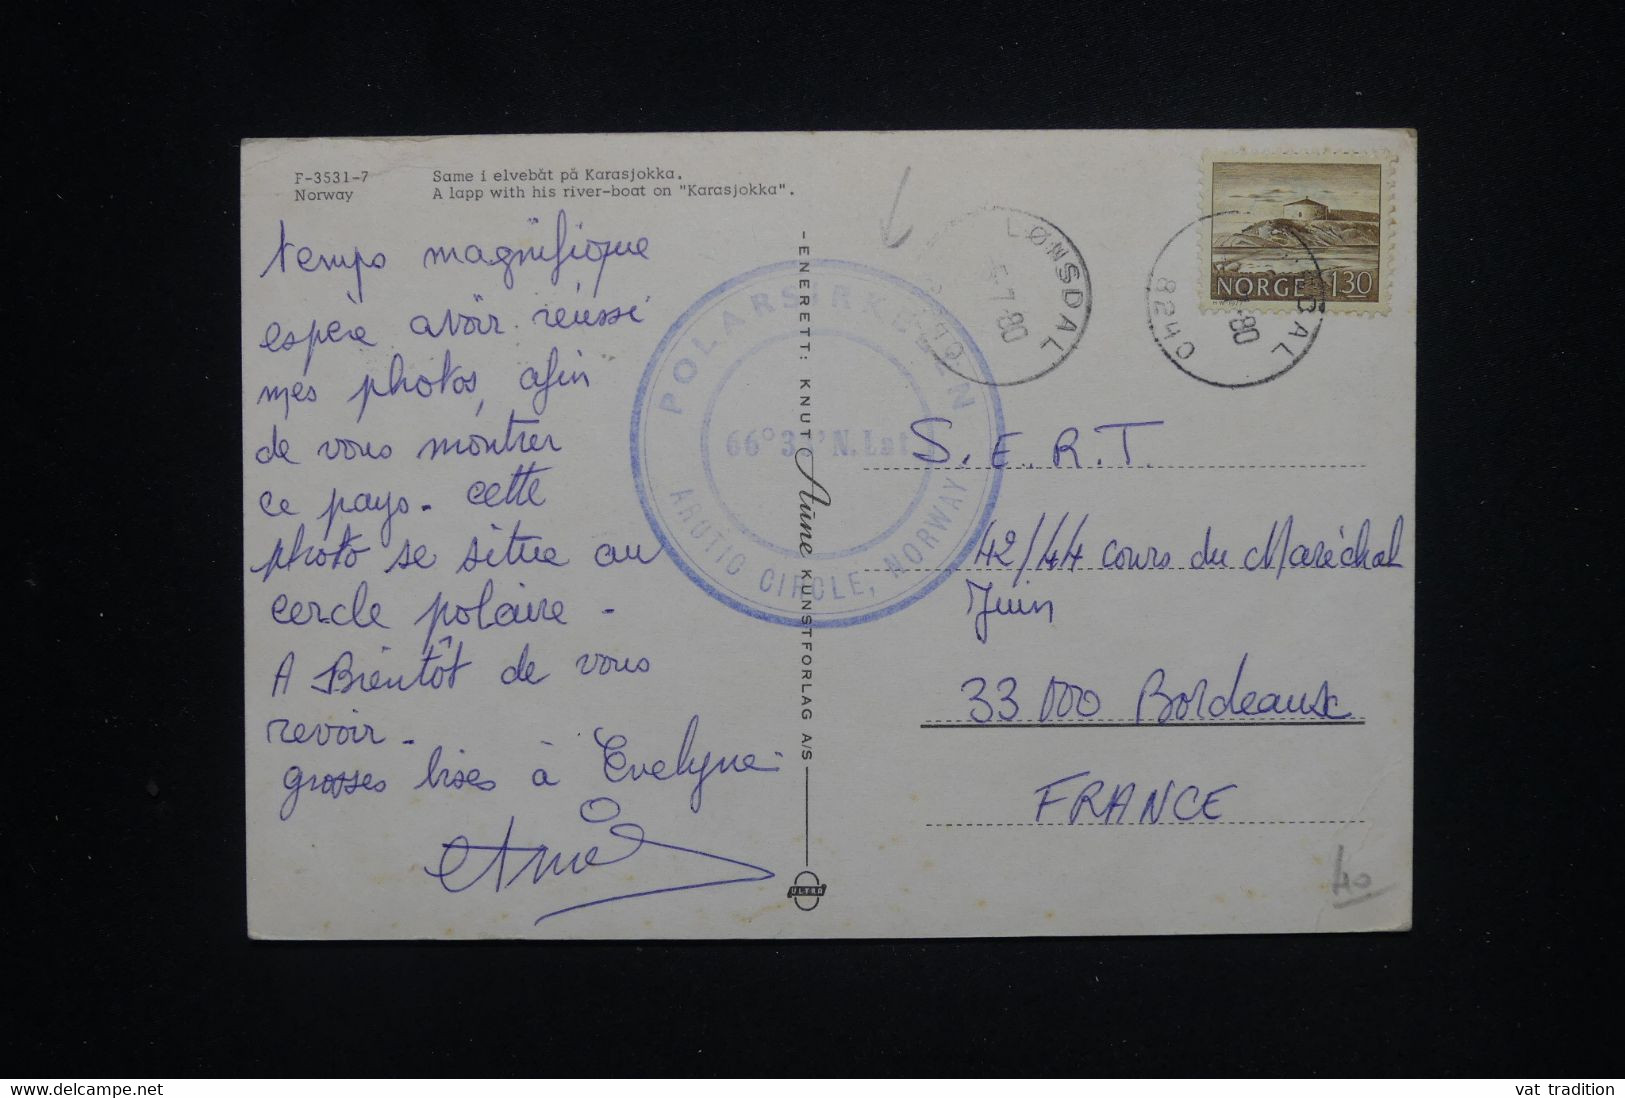 F-3531-7
Norway
Same i elvebåt på Karasjokka.
A lapp with his river-boat on "Karasjokka".
temps magnifique
espère avoir réussi
mes photos, afin
de vous montrer
ce pays. cette
photo se situe au
cercle polaire -
A Bientôt de vous
revoir -
grosses bises à Evelyne
ENERETT: KNUT Aune KUNSTFORLAG A/S
ULTRA
POLARSIRKELEN
66°3 'N. Lat.
ARCTIC CIRCLE, NORWAY
LØNSDAL
7-80
8240
NORGE 130
S.E.R.T.
42/44 cours du Maréchal
Juin
33 000 Bordeaux
FRANCE
40
www.delcampe.net
vat_tradition